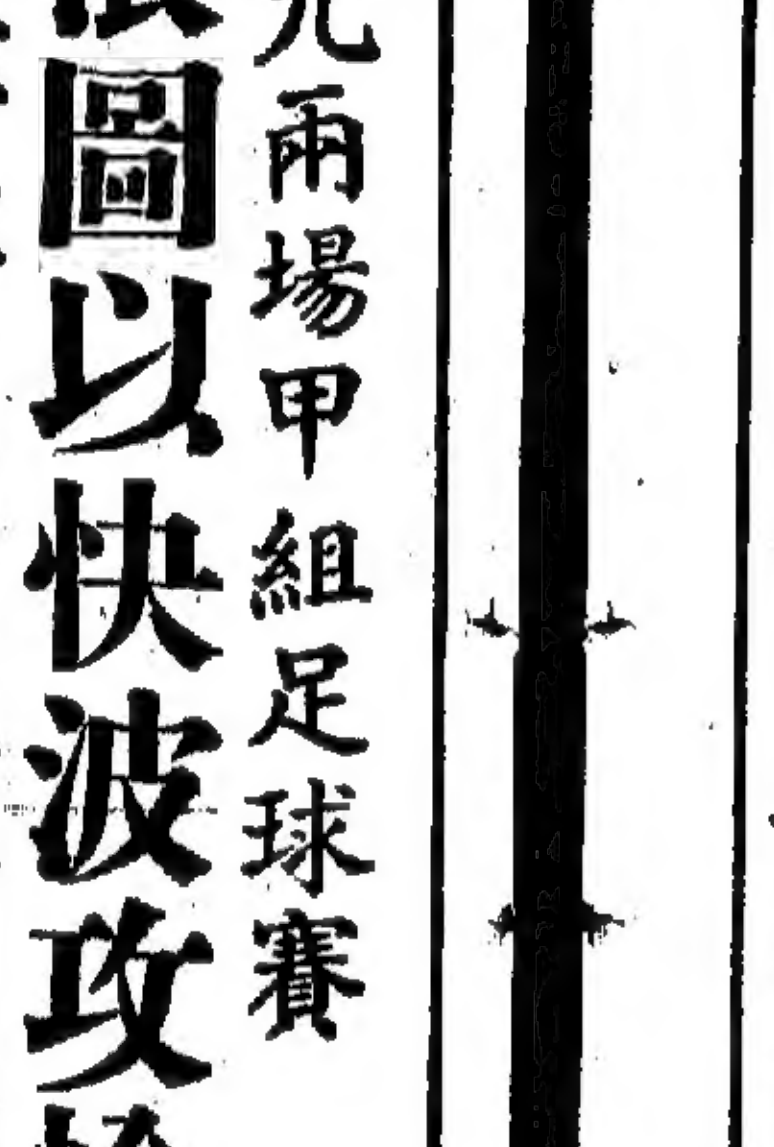 兩場甲組足球賽
圖以快波攻